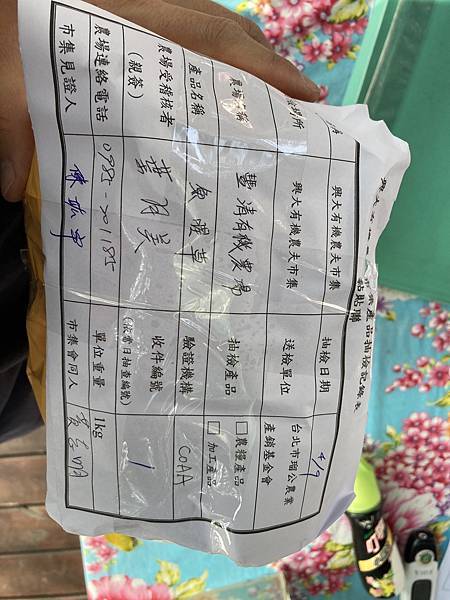 粘貼聯
興大有機農夫市集 抽檢日期 4/9
興大有機農夫市集 送檢單位 台北市瑠公農業產銷基金會
農場名稱 豐清有機農場 抽檢產品 □農糧產品 □加工產品
產品名稱 魚腥草 驗證機構 COAA
農場受稽核者(親簽) 葉月美 收件編號(依當日抽查編號) 1
農場連絡電話 0985-201185 單位重量 1kg
市集見證人 市集會同人